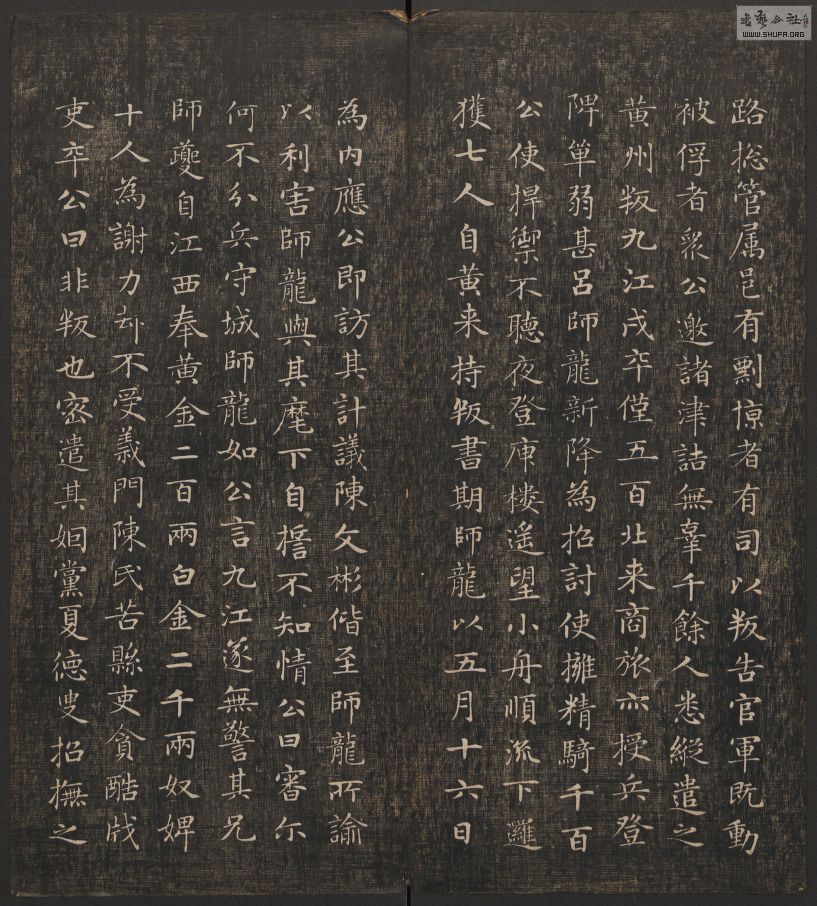 路捴管属邑有剽掠者有司以叛告官軍既動
被俘者衆公邀諸津詰無辜千餘人悉縱遣之
黄州叛九江戍卒僅五百北来商旅亦授兵登
陴單弱甚吕師龍新降為招討使擁精騎千百
公使捍禦不聽夜登庾楼遥望小舟順流下邏
獲七人自黄来持叛書期師龍以五月十六日
為内應公即訪其計議陳文彬偕至師龍所諭
以利害師龍與其麾下自誓不知情公曰審尔
何不分兵守城師龍如公言九江遂無警其兄
師夔自江西奉黄金二百兩白金二千兩奴婢
十人為謝力却不受義門陳氏苦縣吏貪酷戕
吏卒公曰非叛也密遣其姻黨夏德叟招撫之
書藝公社
WWW.SHUFA.ORG